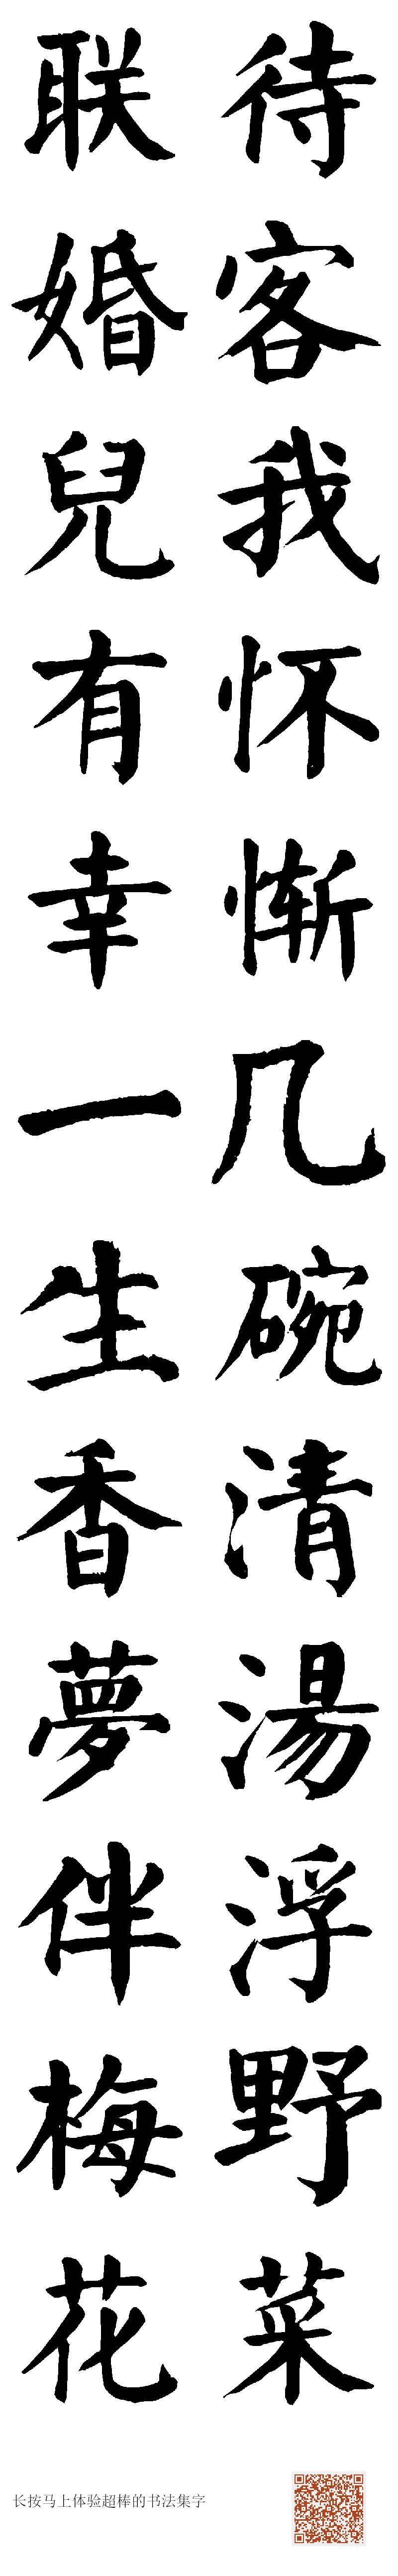 待客我怀惭几碗清湯浮野菜
联婚兒有幸一生香夢伴梅花
长按马上体验超棒的书法集字